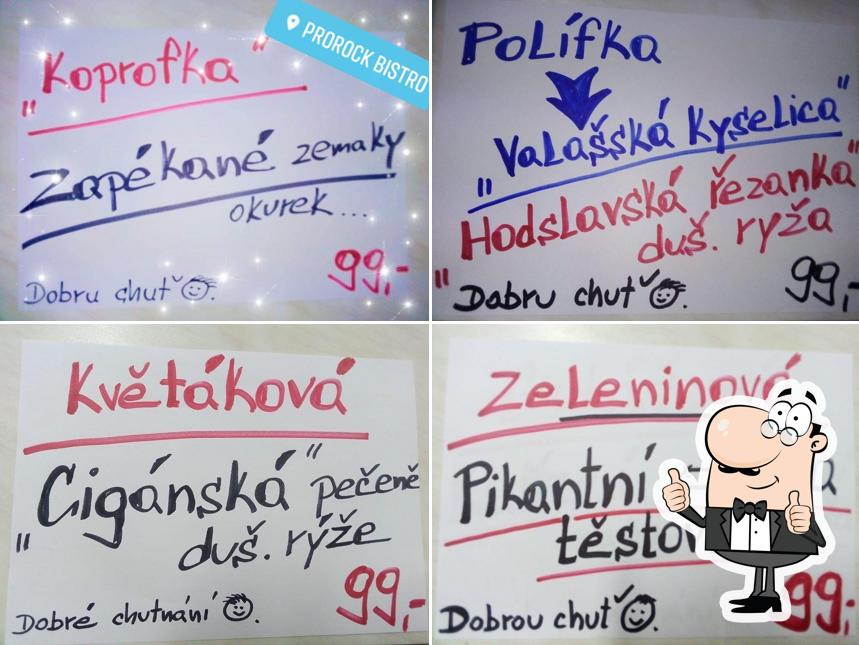 PROROCK BISTRO
"Koprofka"
Zapékané zemaky
okurek...
99,-
Dobru chuť.
PoLífka
"VaLašská kyseLica"
"HodsLavská řezanka"
duš. ryža
99,-
Dobru chuť.
Květáková
"Cigánská" pečeně
duš. rýže
99,-
Dobré chutnání.
ZeLeninová
Pikantní
99,-
Dobrou chuť.